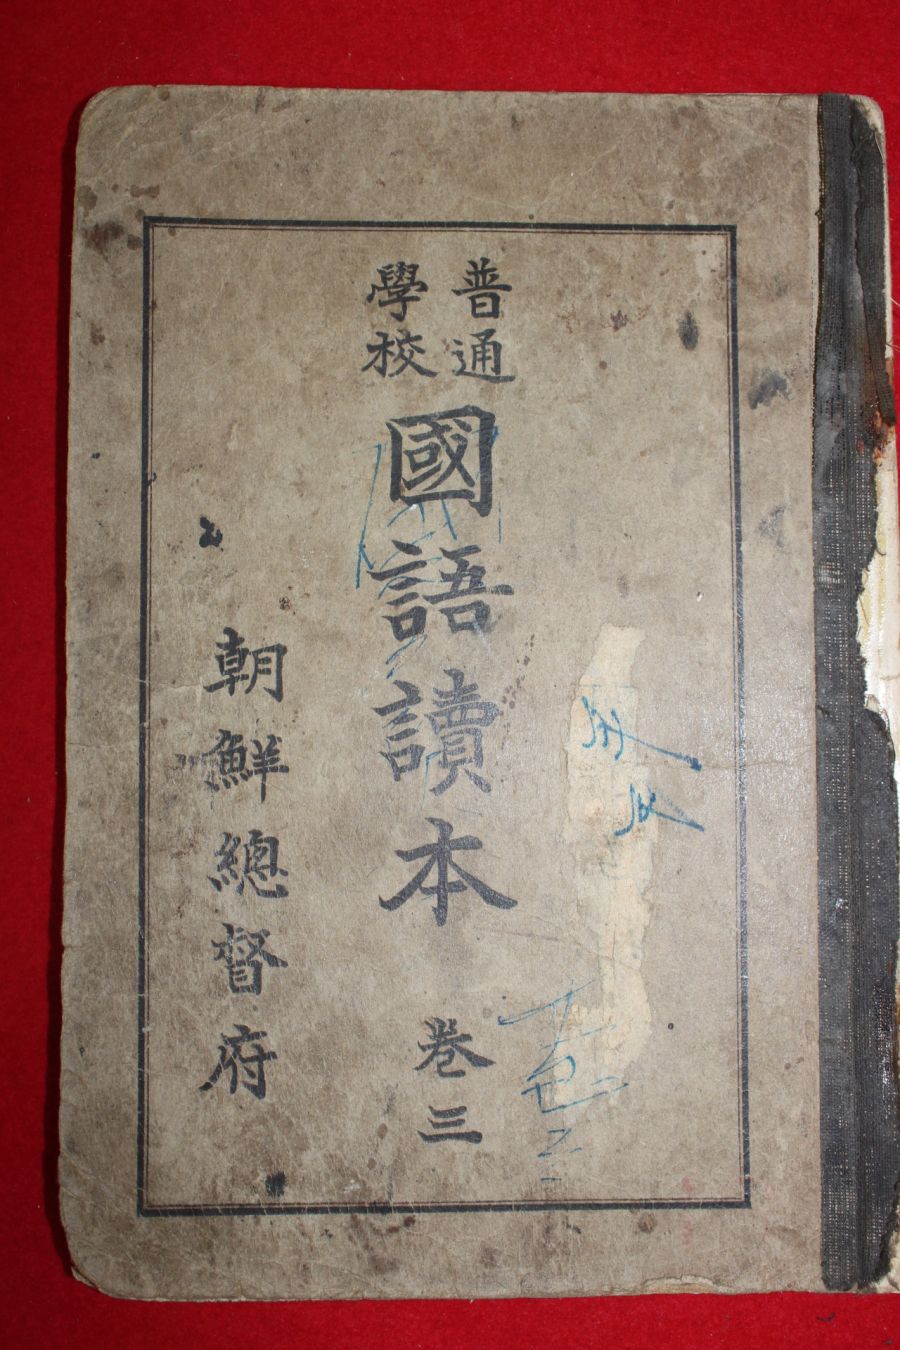 普通
學校
國語讀本 卷三
朝鮮總督府